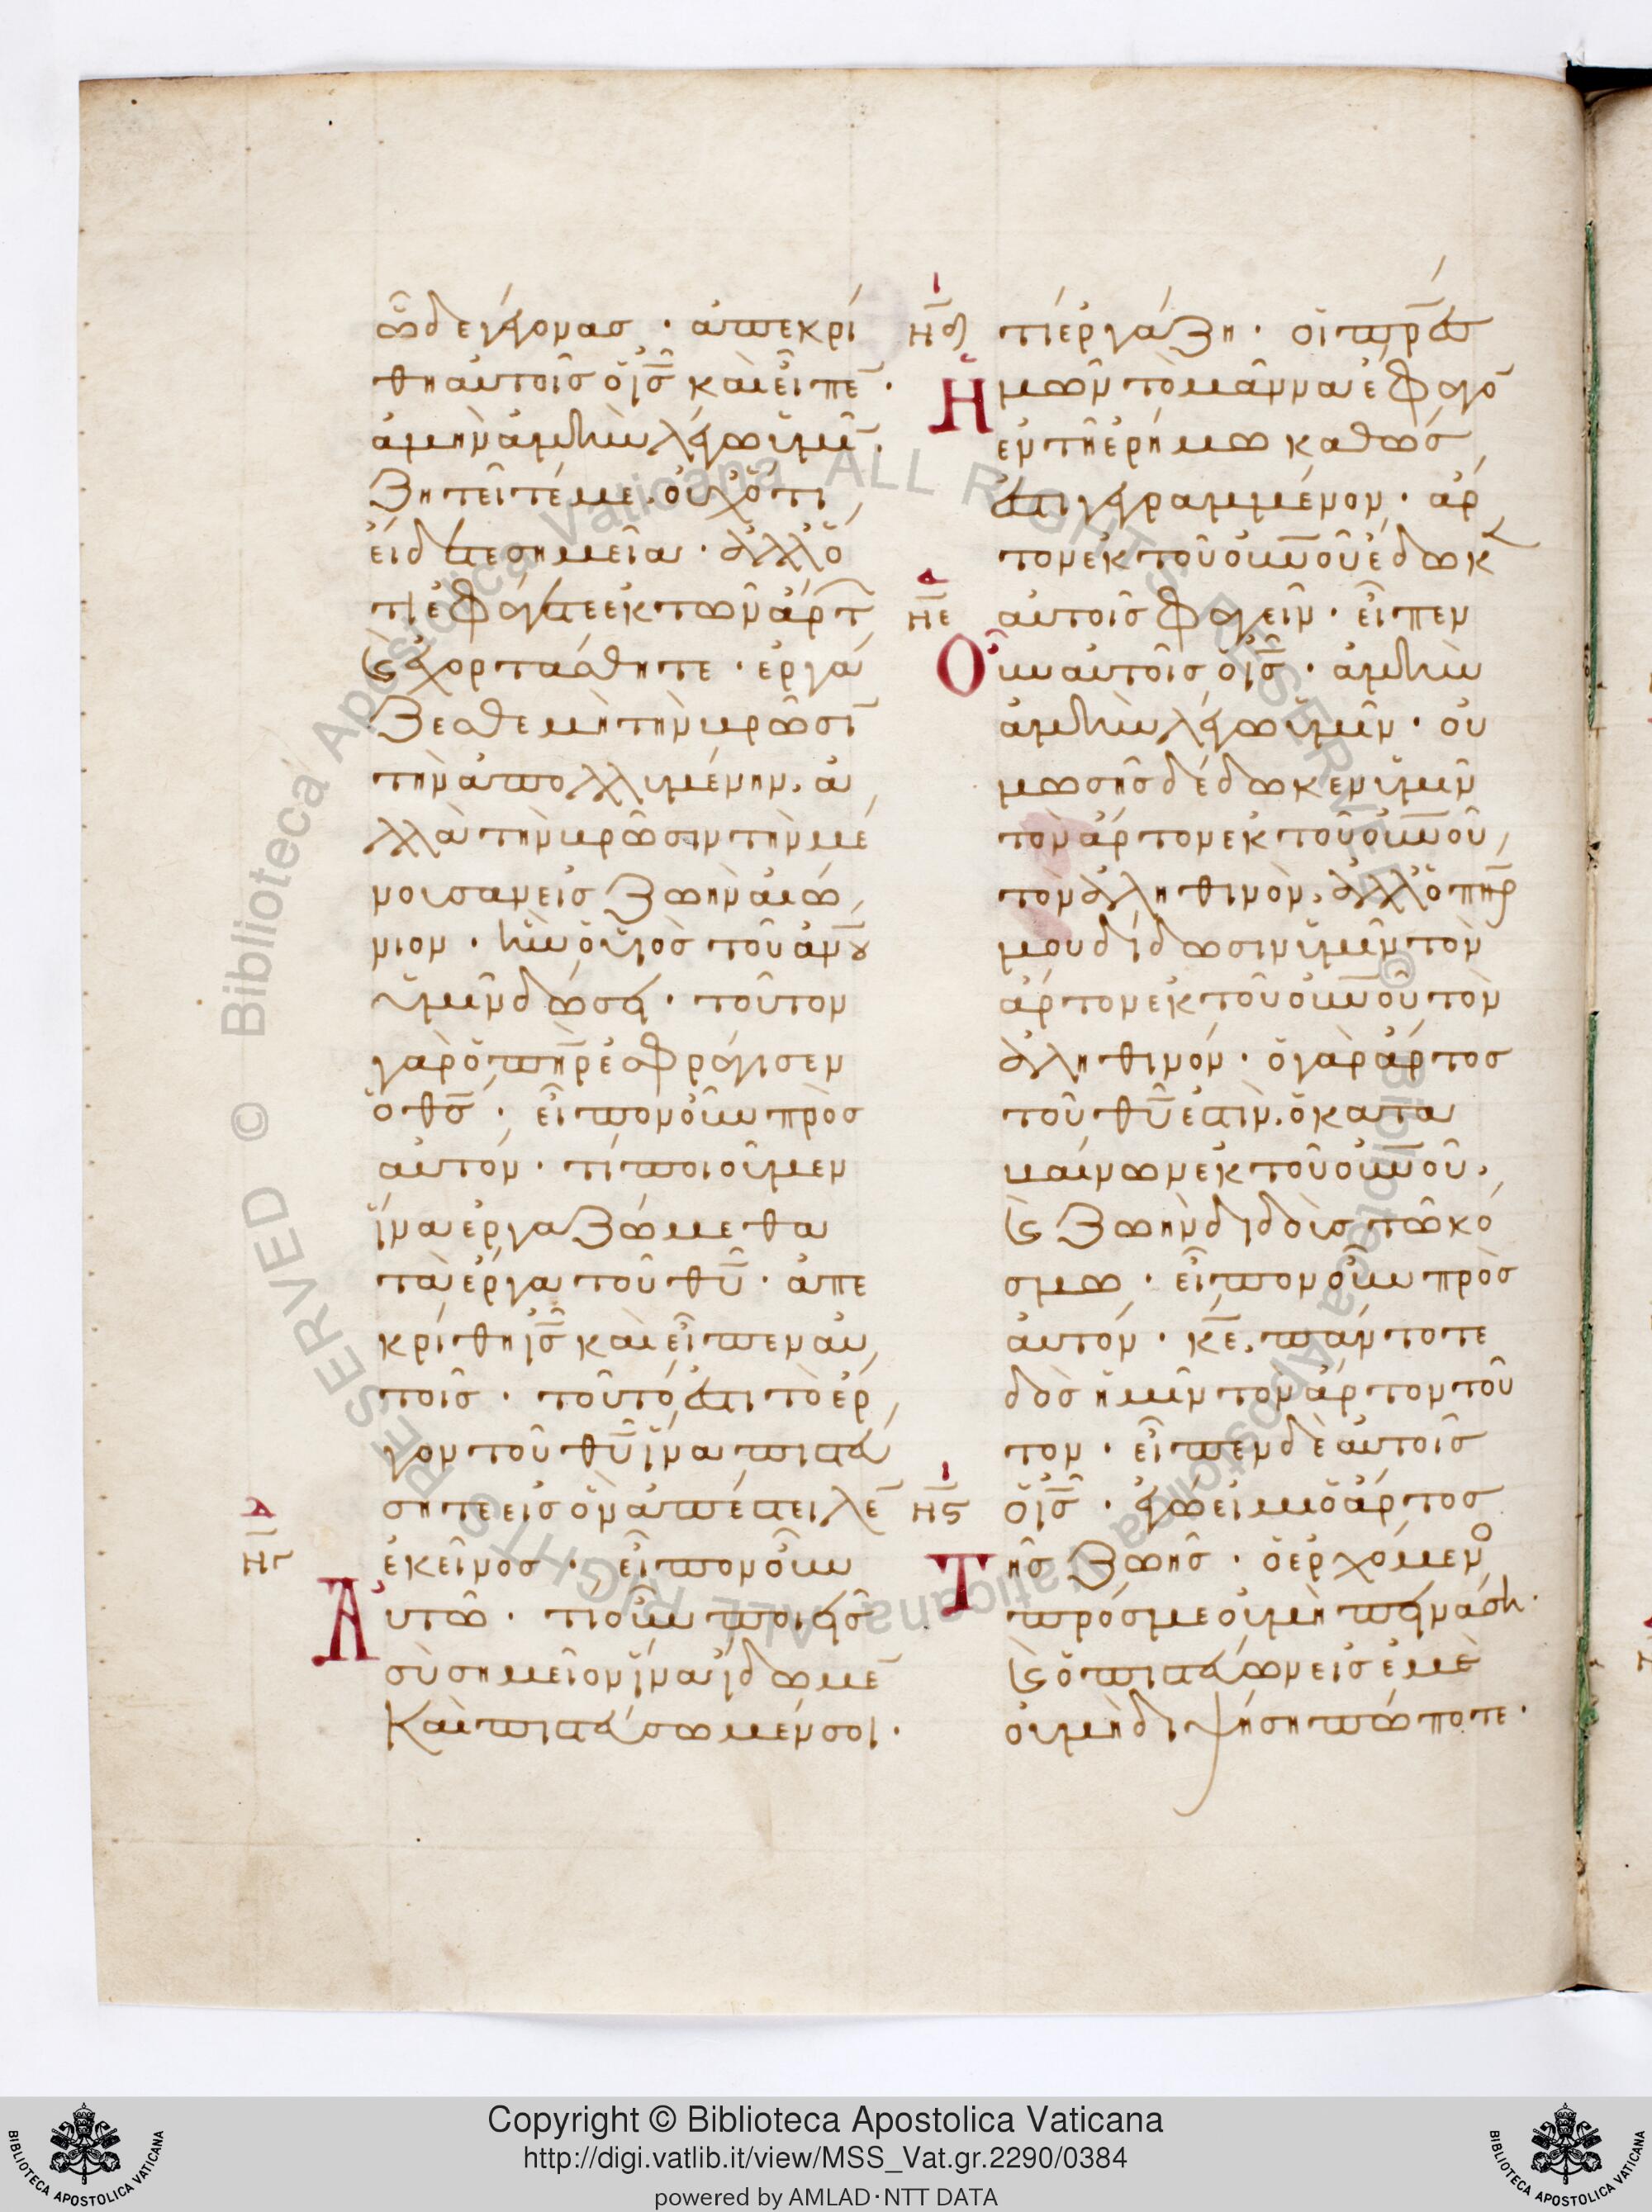 ὧδε γέγονας · ἀπεκρί
θη αὐτοῖς ὁ ι̅ς̅ καὶ εἶπε̅ ·
ἀμὴν ἀμὴν λέγω ὑμῖ̅ ·
ζητεῖτέ με. οὐχ ὅτι
εἴδετε σημεῖα · ἀλλ' ὅ
τι ἐφάγετε ἐκ τῶν ἄρτ
ϗ ἐχορτάσθητε · ἐργά
ζεσθε μὴ τὴν βρῶσι̅
τὴν ἀπολλυμένην. ἀ
λλὰ τὴν βρῶσιν τὴν μέ
νουσαν εἰς ζωὴν αἰώ
νιον · ἣν ὁ υἱὸς τοῦ α̅ν̅ȣ̅
ὑμῖν δώσει · τοῦτον
γὰρ ὁ π̅η̅ρ̅ ἐσφράγισεν
ὁ θ̅ς̅ · εἶπον οὖν πρὸς
αὐτόν · τί ποιοῦμεν
ἵνα ἐργαζώμεθα
τὰ ἔργα τοῦ θ̅υ̅ · ἀπε
κρίθη ι̅ς̅ καὶ εἶπεν αὐ
τοῖς · τοῦτό ἐστι τὸ ἔρ
γον τοῦ θ̅υ̅ ἵνα πιστεύ
σητε εἰς ὃν ἀπέστειλε̅
ἐκεῖνος · εἶπον οὖν
Αὐτῶ · τί οὖν ποιεῖς
σὺ σημεῖον ἵνα ἴδωμε̅
Καὶ πιστεύσωμέν σοι ·
τί ἐργάζη · οἱ π̅ρ̅ε̅ς̅
Ἡμῶν τὸ μάννα ἔφαγο̅
ἐν τῆ ἐρήμω καθώς
ἐστι γεγραμμένον · ἄρ
τον ἐκ τοῦ ο̅υ̅ν̅ο̅υ̅ ἔδωκ
αὐτοῖς φαγεῖν · εἶπεν
Οὖν αὐτοῖς ὁ ι̅ς̅ · ἀμὴν
ἀμὴν λέγω ὑμῖν · οὐ
μωσῆς δέδωκεν ὑμῖν
τὸν ἄρτον ἐκ τοῦ ο̅υ̅ν̅ο̅υ̅
τὸν ἀληθινόν. ἀλλ' ὁ π̅η̅ρ̅
μου δίδωσιν ὑμῖν τὸν
ἄρτον ἐκ τοῦ ο̅υ̅ν̅ο̅υ̅ τὸν
ἀληθινόν · ὁ γὰρ ἄρτος
τοῦ θ̅υ̅ ἐστίν. ὁ κατα
βαίνων ἐκ τοῦ ο̅υ̅ν̅ο̅υ̅.
ϗ ζωὴν διδοὺς τῶ κό
σμω · εἶπον οὖν πρὸς
αὐτόν · κ̅ε̅. πάντοτε
δὸς ἡμῖν τὸν ἄρτον τοῦ
τον · εἶπεν δὲ αὐτοῖς
ὁ ι̅ς̅ · ἐγώ εἰμι ὁ ἄρτος
Τῆς ζωῆς · ὁ ἐρχόμενο
πρός με οὐ μὴ πεινάση ·
ϗ ὁ πιστεύων εἰς ἐμὲ
οὐ μὴ διψήση πώποτε ·
Copyright © Biblioteca Apostolica Vaticana
http://digi.vatlib.it/view/MSS_Vat.gr.2290/0384
powered by AMLAD·NTT DATA